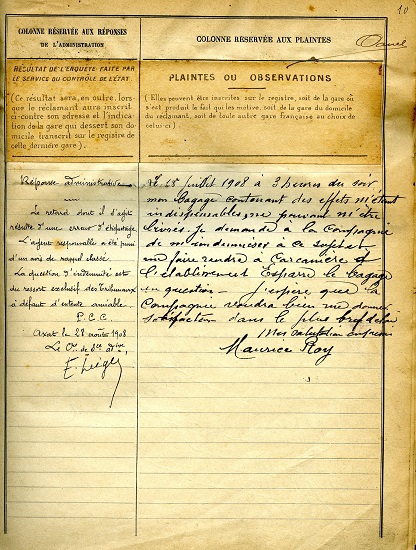 10
COLONNE RÉSERVÉE AUX RÉPONSES
DE L'ADMINISTRATION
RÉSULTAT DE L'ENQUÊTE FAITE PAR
LE SERVICE DU CONTRÔLE DE L'ÉTAT
(Ce résultat sera, en outre, lors-
que le réclamant aura inscrit
ci-contre son adresse et l'indica-
tion de la gare qui dessert son do-
micile transcrit sur le registre de
cette dernière gare).
Réponse administrative
Le retard dont il s'agit
résulte d'une erreur d'étiquetage.
L'agent responsable a été puni
d'un avis de rappel classé.
La question d'indemnité est
du ressort exclusif des tribunaux
à défaut d'entente amiable.
P.C.C.
Axat le 28 août 1908
Le
COLONNE RÉSERVÉE AUX PLAINTES
PLAINTES ou OBSERVATIONS
(Elles peuvent être inscrites sur le registre, soit de la gare où
s'est produit le fait qui les motive, soit de la gare du domicile
du réclamant, soit de toute autre gare française au choix de
celui-ci).
Le 28 juillet 1908 à 3 heures du soir
mon bagage contenant des effets m'étant
indispensables, ne pouvant m'être
livrés, je demande à la Compagnie
de m'indemniser à ce sujet et
me faire rendre à Carcanière
l'établissement Esparre le bagage
en question. J'espère que la
Compagnie voudra bien me donner
satisfaction dans le plus bref délai
Mes salutations
Maurice Roy